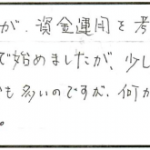 が、資金運用を考
で始めましたが、少し
も多いのですが、何か
。